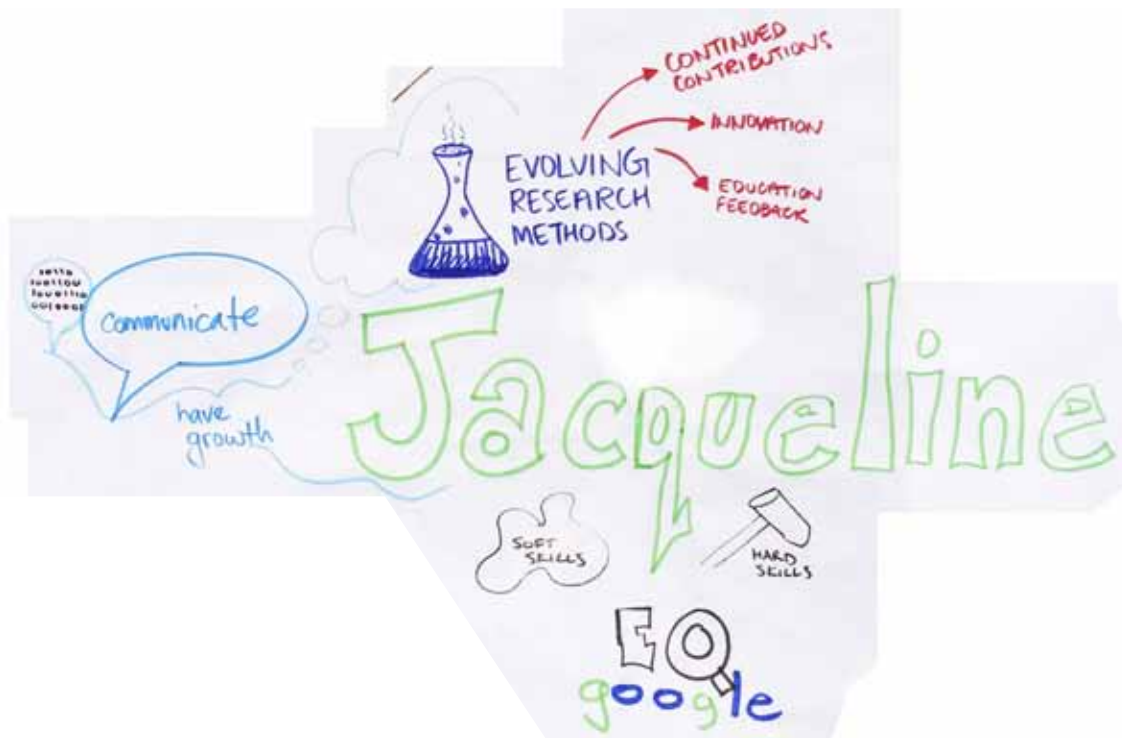 CONTINUED
CONTRIBUTIONS
INNOVATION
EDUCATION
FEEDBACK
EVOLVING
RESEARCH
METHODS
communicate
have
growth
Jacqueline
SOFT
SKILLS
HARD
SKILLS
EQ
google